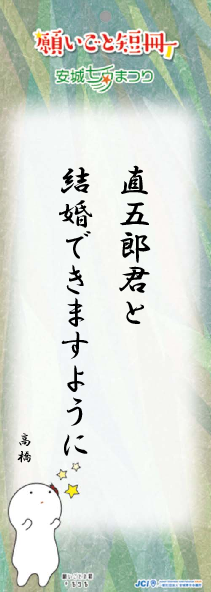 願いごと短冊
安城七夕まつり
直五郎君と
結婚できますように
高橋
JCI